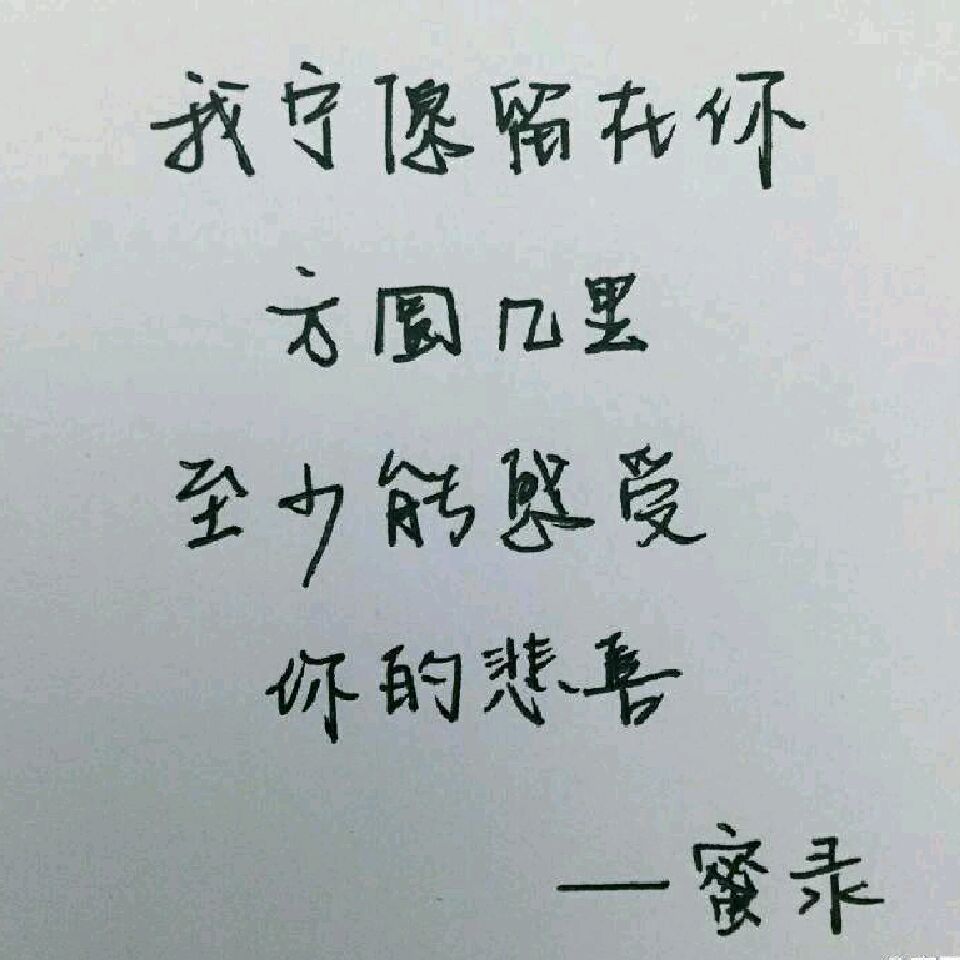 我宁愿留在你
方圆几里
至少能感受
你的悲喜
——蜜录